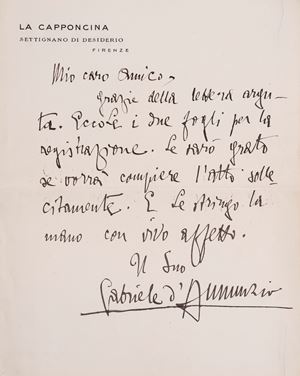 LA CAPPONCINA
SETTIGNANO DI DESIDERIO
FIRENZE
Mio caro Amico,
grazie della lettera argu-
ta. Eccole i due fogli per la
registrazione. Le sarò grato
se vorrà compiere l'atto solle-
citamente. E Le stringo la
mano con vivo affetto.
Il Suo
Gabriele d'Annunzio